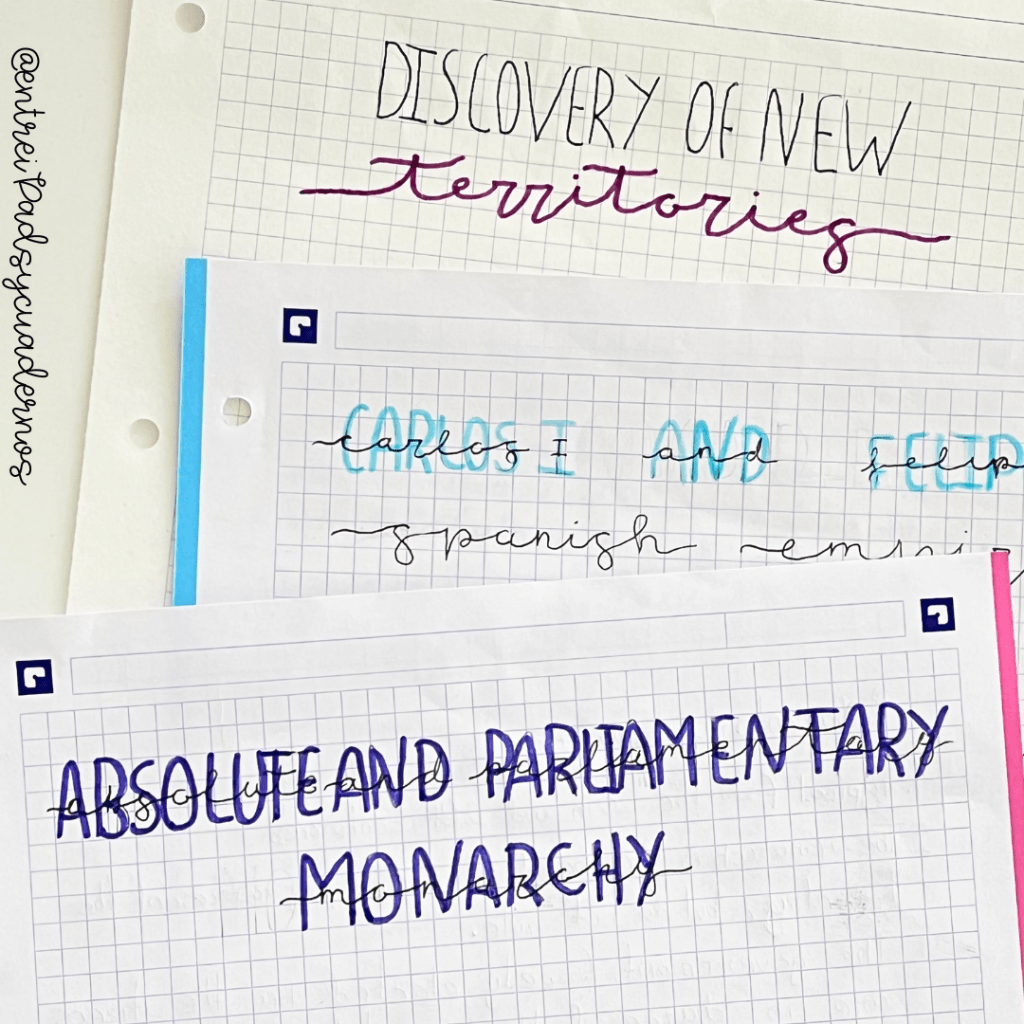 @entreiPadsycuadernos
DISCOVERY OF NEW
territories
CARLOS I AND FELIP
carlos I and felip
spanish
ABSOLUTE AND PARLIAMENTARY
absolute and parliamentary
MONARCHY
monarchy